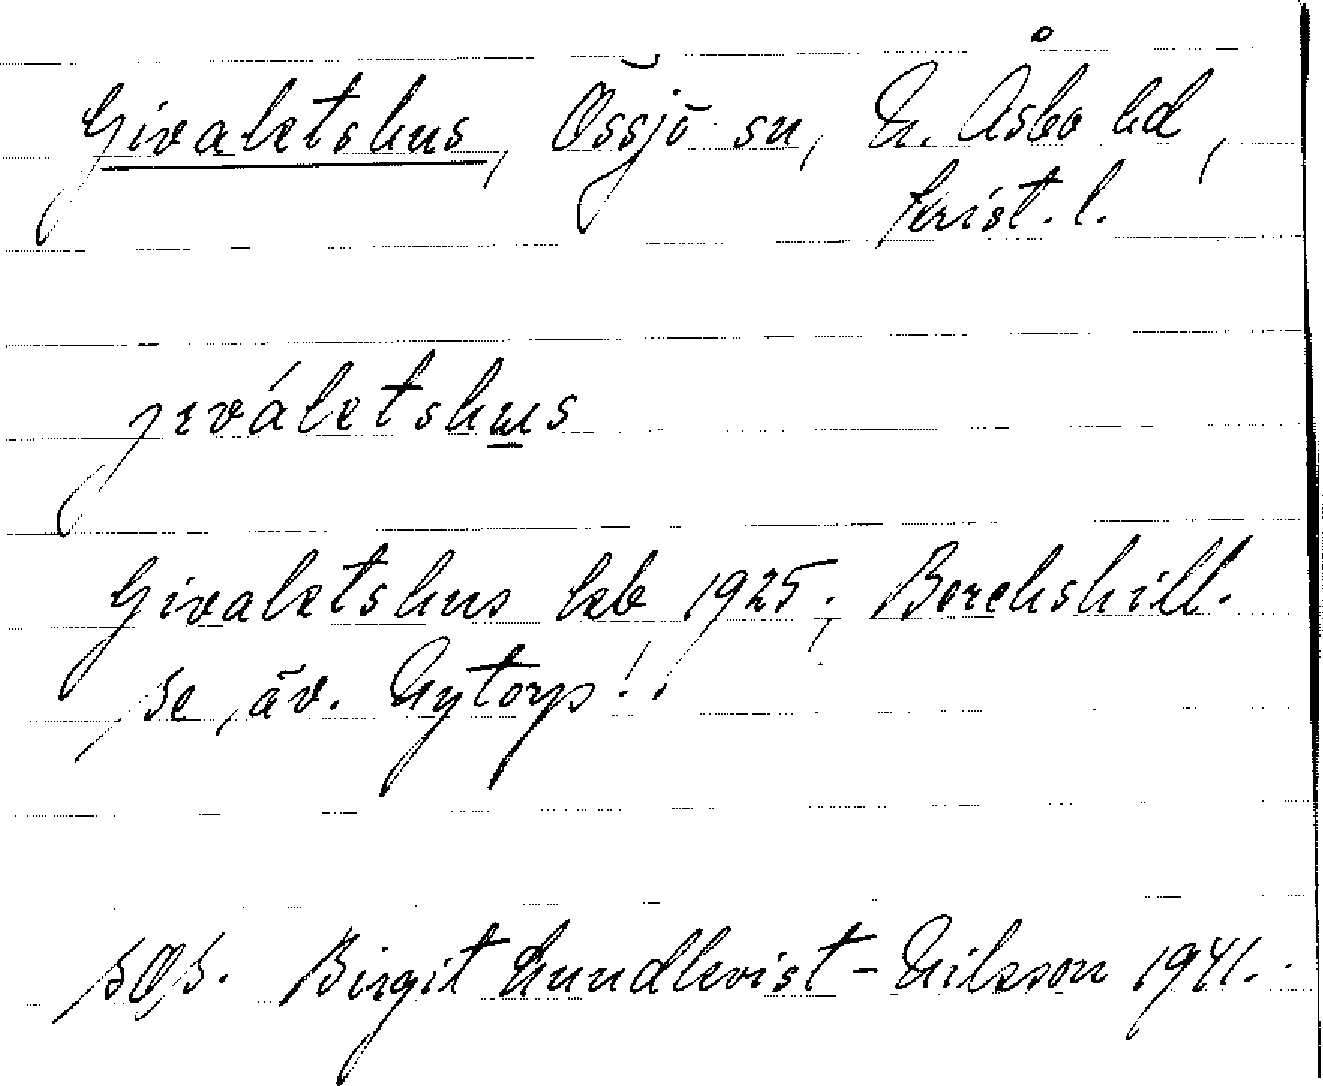 Givaletshus, Össjö sn, N. Åsbo hd,
Krist. l.
jiváletshus
Givaletshus kb 1925; Berchshill.
se äv. Nytorp!
sOs. Birgit Lundkvist-Nilsson 1941.